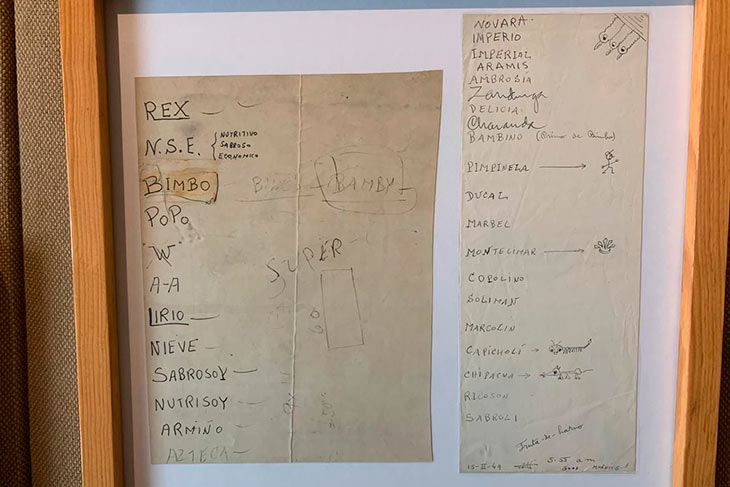 REX
N.S.E. { NUTRITIVO
SABROSO
ECONOMICO
BIMBO BAMBY
POPO
W
A-A
SUPER
LIRIO
NIEVE
SABROSOY
NUTRISOY
ARMIÑO
AZTECA
NOVARA
IMPERIO
IMPERIAL
ARAMIS
AMBROSIA
Zandunga
DELICIA
Charanda
BAMBINO (Primo de Bimbo)
PIMPINELA
DUCAL
MARBEL
MONTELIMAR
COPOLINO
SOLIMAN
MARCOLIN
CAPICHOLI
CHIPACUA
RICOSON
SABROLI
5:55 a.m